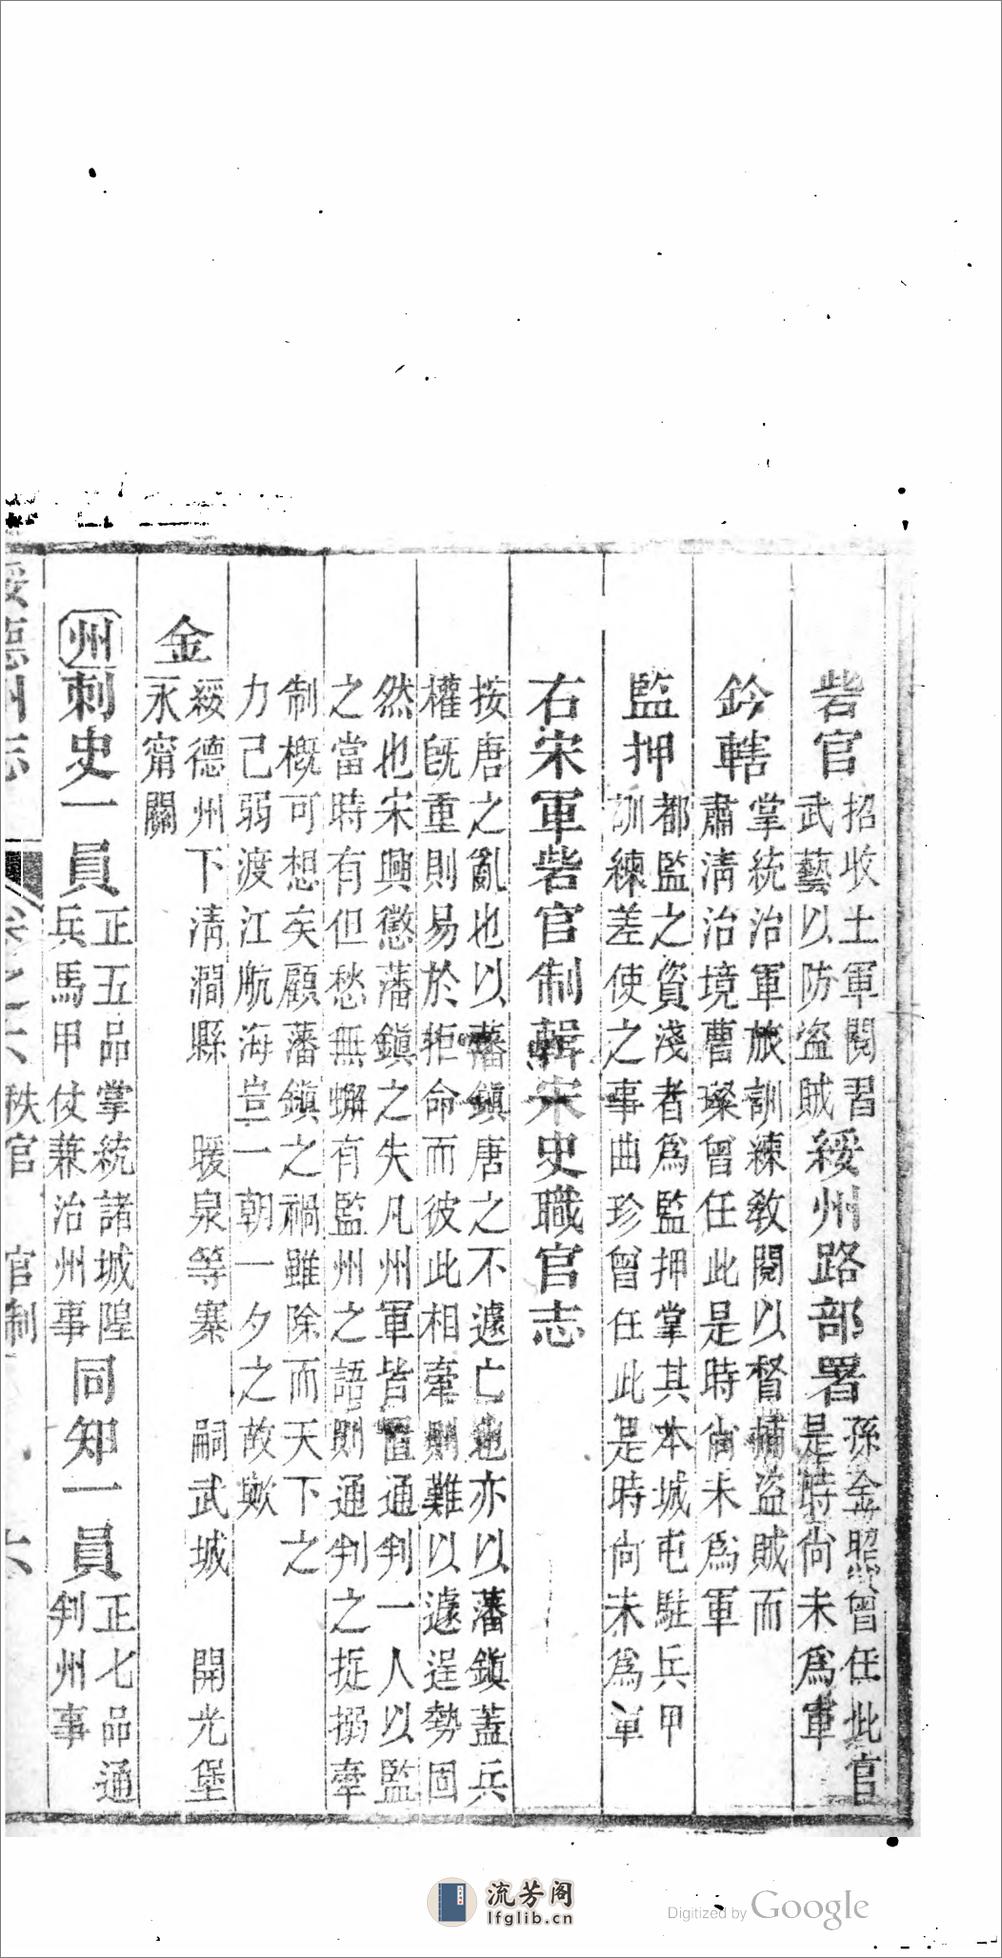 砦官
招收土軍閱習
武藝以防盜賊
綏州路部署
孫全照曾任此官
是時尚未爲軍
鈐轄
掌統治軍旅訓練敎閱以督捕盜賊而
肅淸治境曹璨曾任此是時尙未爲軍
監押
都監之資淺者爲監押掌其本城屯駐兵甲
訓練差使之事曲珍曾任此是時尙未爲軍
右宋軍砦官制輯宋史職官志
按唐之亂也以藩鎭唐之不遽亡也亦以藩鎭蓋兵
權旣重則易於拒命而彼此相牽則難以遽逞勢固
然也宋興懲藩鎭之失凡州軍皆置通判一人以監
之當時有但愁無蠏有監州之語則通判之扼搦牽
制槪可想矣顧藩鎭之禍雖除而天下之
力已弱渡江航海豈一朝一夕之故歟
金
綏德州下淸澗縣 暖泉等寨 嗣武城 開光堡
永甯關
州刺史一員
正五品掌統諸城隍
兵馬甲仗兼治州事
同知一員
正七品通
判州事
綏德州志 卷之六 秩官 官制 六
流芳阁
lfglib.cn
Digitized by Google